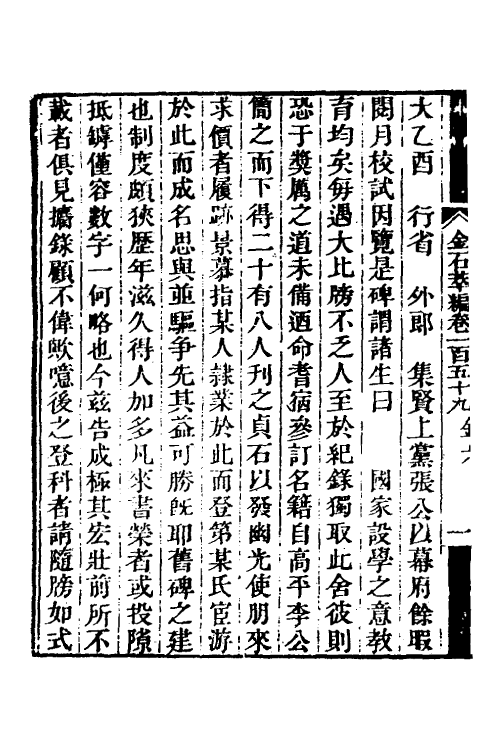 金石萃編卷一百五十九 金六 一
大乙酉 行省 外郎 集賢上黨張公以幕府餘暇
閱月校試因覽是碑謂諸生曰 國家設學之意教
育均矣每遇大比牓不乏人至於紀錄獨取此舍彼則
恐于獎厲之道未備迺命耆宿參訂名籍自高平李公
簡之而下得二十有八人刊之貞石以發幽光使朋來
求價者履跡景慕指某人隸業於此而登第某氏宦游
於此而成名思與並驅爭先其益可勝旣耶舊碑之建
也制度頗狹歷年滋久得人加多凡來書榮者或投隙
抵罅僅容數字一何略也今茲告成極其宏壯前所不
載者俱見攟錄顧不偉歟噫後之登科者請隨牓如式